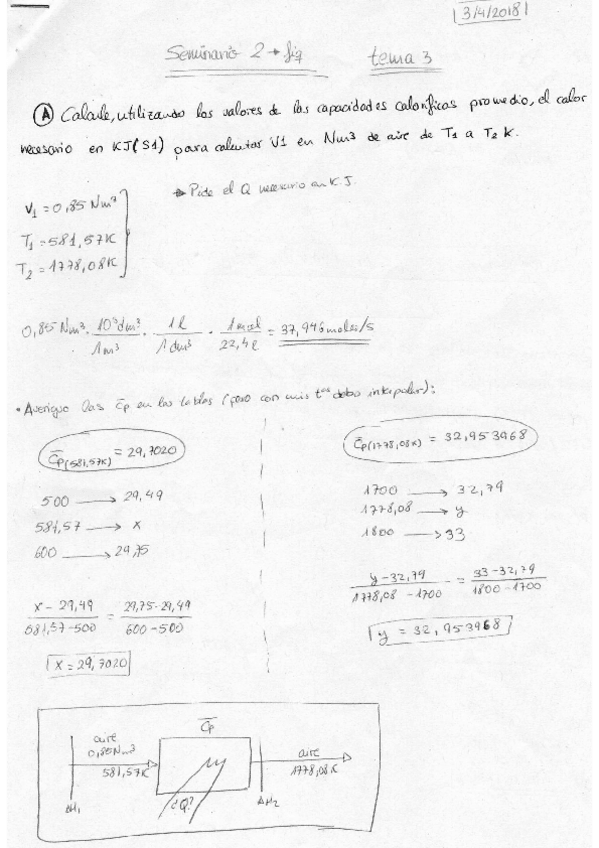 3/4/2018
Seminario 2 → fiq tema 3
(A) Calcule, utilizando los valores de las capacidades caloríficas promedio, el calor
necesario en KJ(S1) para calentar V1 en Nm³ de aire de T₁ a T₂ K.
→ Pide el Q necesario en KJ.
V₁ = 0,85 Nm³
T₁ = 581,57K
T₂ = 1778,08K
0,85 Nm³ · 10³dm³/1m³ · 1l/1dm³ · 1mol/22,4l = 37,946 moles/s
• Averiguo las C̄p en las tablas (pero con mis tᵃˢ debo interpolar):
C̄p(581,57K) = 29,7020
500 → 29,49
581,57 → x
600 → 29,75
x - 29,49 / 581,57 - 500 = 29,75 - 29,49 / 600 - 500
x = 29,7020
C̄p(1778,08K) = 32,953968
1700 → 32,79
1778,08 → y
1800 → 33
y - 32,79 / 1778,08 - 1700 = 33 - 32,79 / 1800 - 1700
y = 32,953968
C̄p
aire
0,85Nm³
581,57K
aire
1778,08K
ΔH₁
¿Q?
ΔH₂